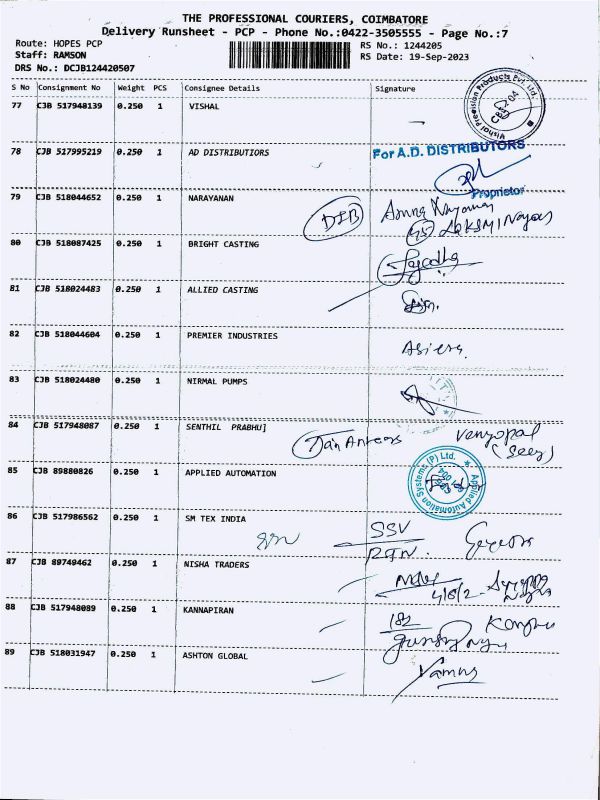 THE PROFESSIONAL COURIERS, COIMBATORE
Delivery Runsheet - PCP - Phone No.:0422-3505555 - Page No.:7
Route: HOPES PCP
RS No.: 1244205
Staff: RAMSON
RS Date: 19-Sep-2023
DRS No.: DCJB124420507
S No Consignment No Weight PCS Consignee Details Signature
77 CJB 517948139 0.250 1 VISHAL
Vishal Precision Products Pvt. Ltd.
78 CJB 517995219 0.250 1 AD DISTRIBUTIORS
For A.D. DISTRIBUTORS
Proprietor
79 CJB 518044652 0.250 1 NARAYANAN
80 CJB 518087425 0.250 1 BRIGHT CASTING
81 CJB 518024483 0.250 1 ALLIED CASTING
82 CJB 518044604 0.250 1 PREMIER INDUSTRIES
83 CJB 518024480 0.250 1 NIRMAL PUMPS
84 CJB 517948087 0.250 1 SENTHIL PRABHU]
venyopal
85 CJB 89880826 0.250 1 APPLIED AUTOMATION
Applied Automation Systems (P) Ltd.
86 CJB 517986562 0.250 1 SM TEX INDIA
SSV
87 CJB 89749462 0.250 1 NISHA TRADERS
88 CJB 517948089 0.250 1 KANNAPIRAN
182
89 CJB 518031947 0.250 1 ASHTON GLOBAL